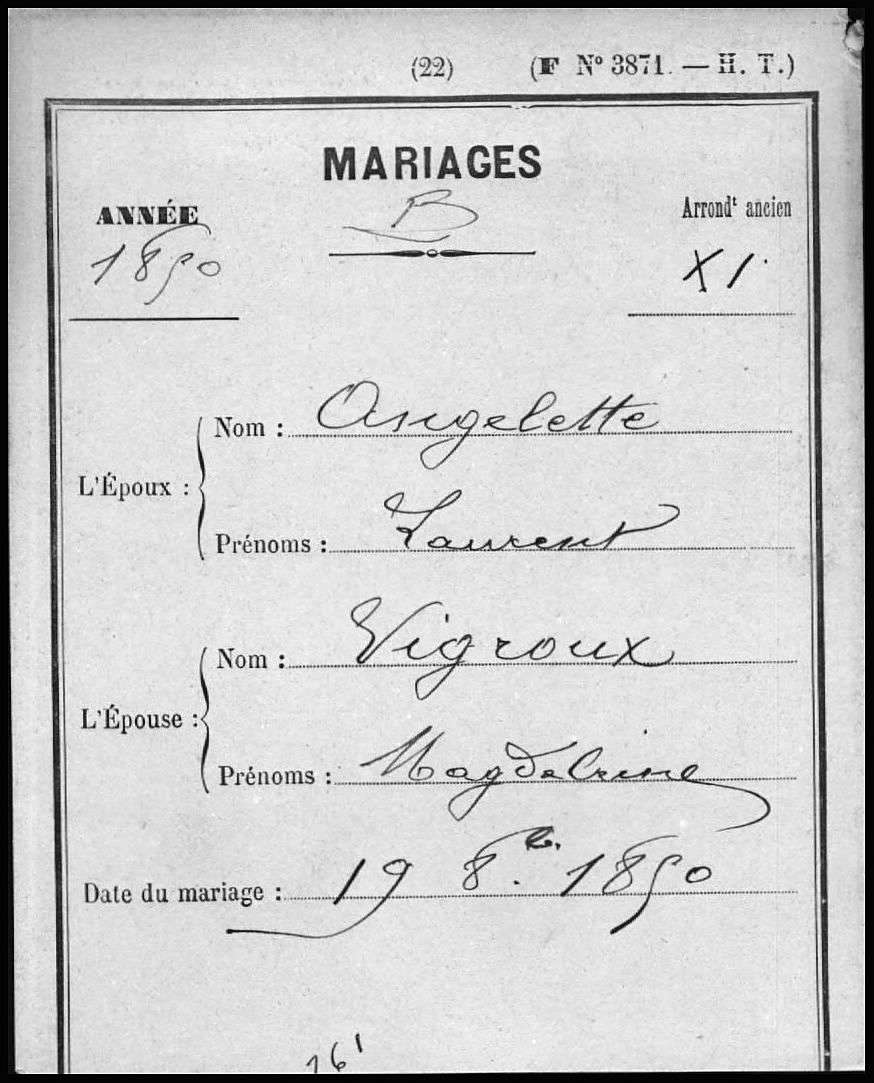 (22) (F Nº 3871. — H. T.)
MARIAGES
B
ANNÉE Arrondt ancien
1850 XI
L'Époux :
Nom : Angelette
Prénoms : Laurent
L'Épouse :
Nom : Vigroux
Prénoms : Magdeleine
Date du mariage : 19 8.bre 1850
161